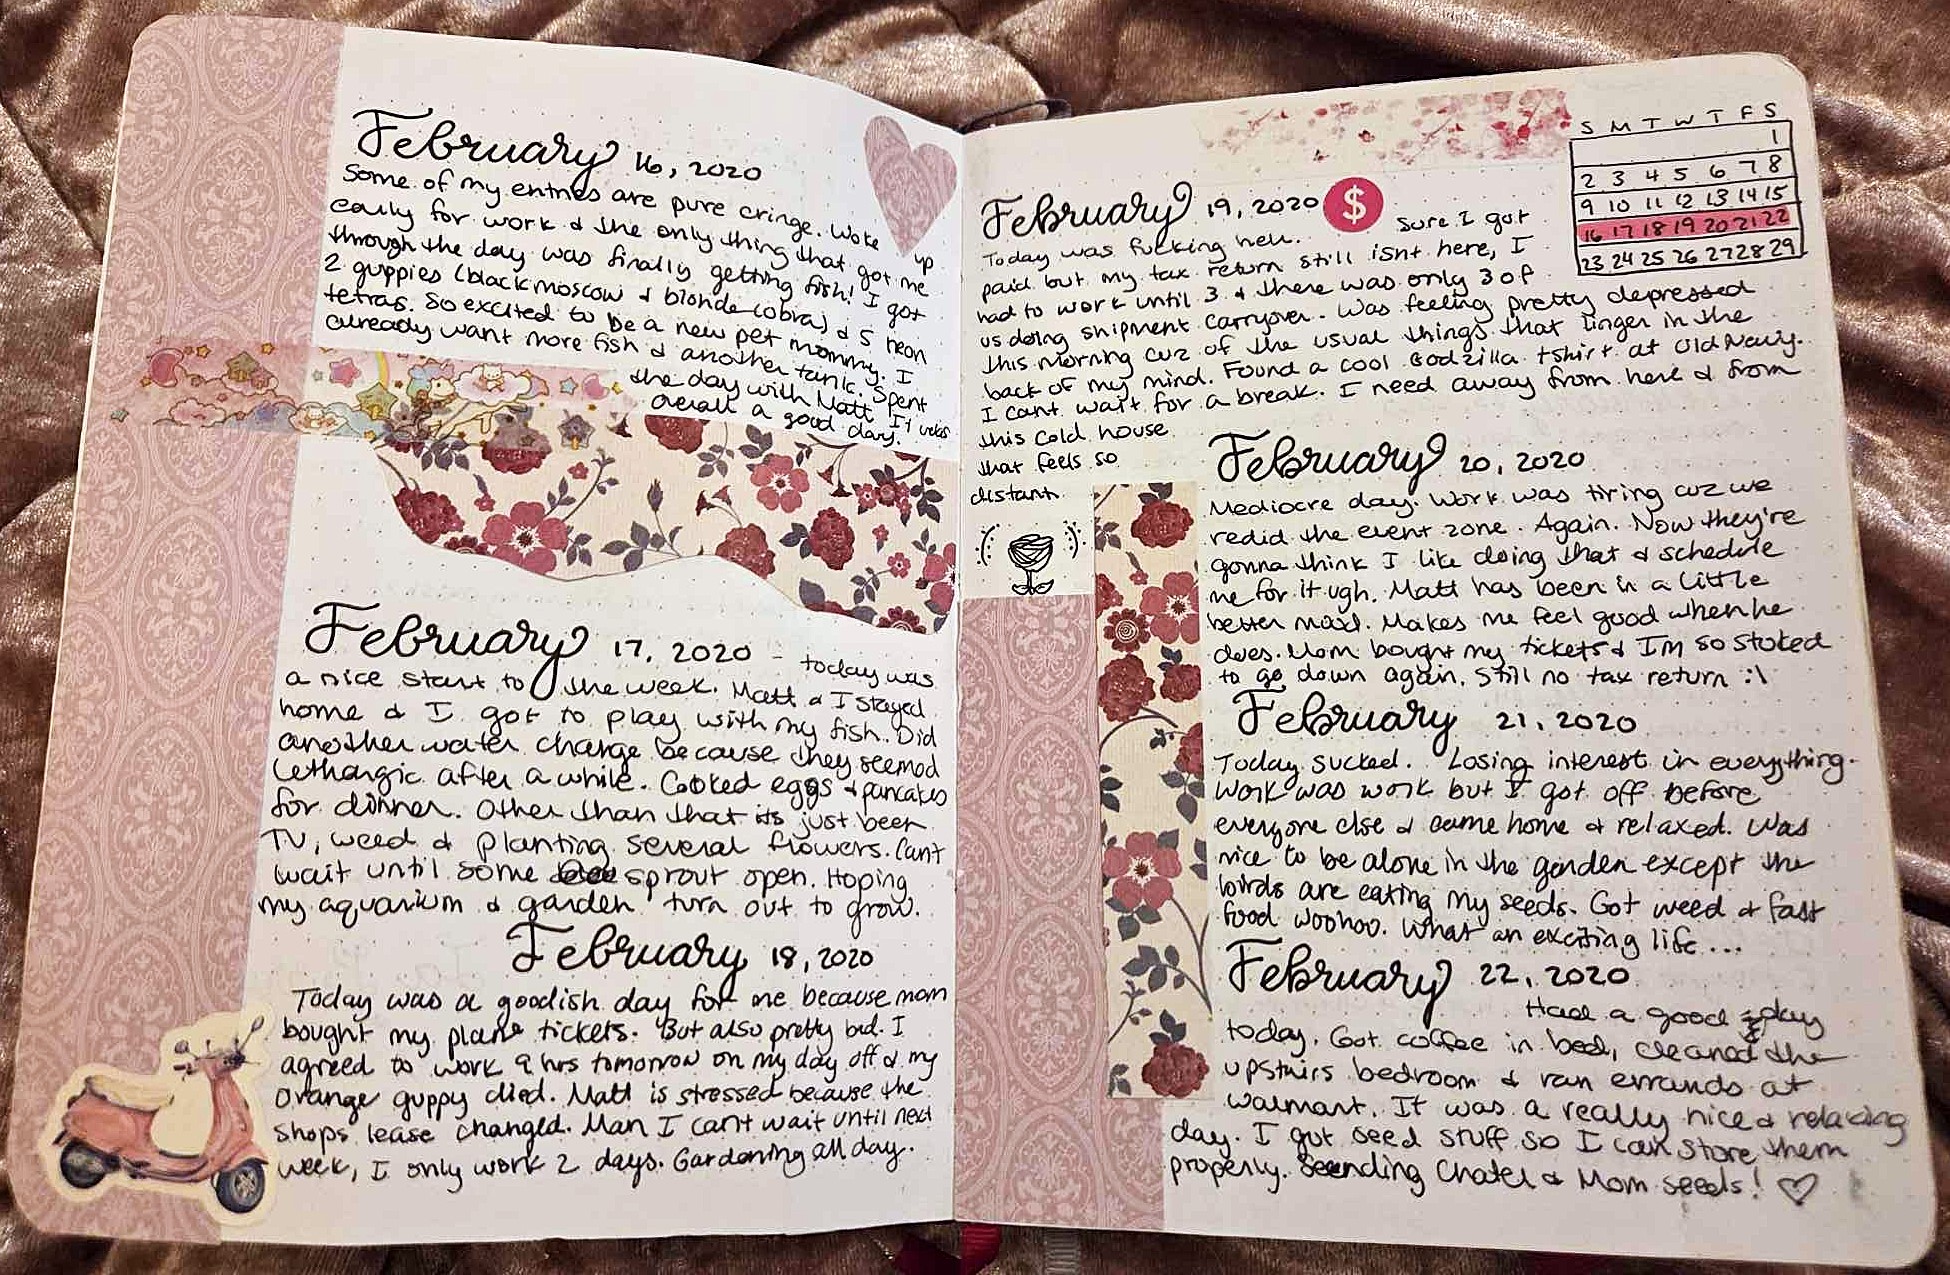 February 16, 2020
Some of my entries are pure cringe. Woke up
early for work & the only thing that got me
through the day was finally getting fish! I got
2 guppies (black moscow & blonde cobra) & 5 neon
tetras. So excited to be a new pet mommy. I
already want more fish & another tank. Spent
the day with Matt. It was
overall a good day.
February 17, 2020 - today was
a nice start to the week. Matt & I stayed
home & I got to play with my fish. Did
another water change because they seemed
lethargic after a while. Cooked eggs & pancakes
for dinner. Other than that its just been
TV, weed & planting several flowers. Cant
wait until some sprout open. Hoping
my aquarium & garden turn out to grow.
February 18, 2020
Today was a goodish day for me because mom
bought my plane tickets. But also pretty bad. I
agreed to work 9 hrs tomorrow on my day off & my
orange guppy died. Matt is stressed because the
shops lease changed. Man I cant wait until next
week, I only work 2 days. Gardening all day.
February 19, 2020 $
Today was fucking hell. Sure I got
paid but my tax return still isnt here, I
had to work until 3 & there was only 3 of
us doing shipment carryover. Was feeling pretty depressed
this morning cuz of the usual things that linger in the
back of my mind. Found a cool Godzilla tshirt at Old Navy.
I cant wait for a break. I need away from here & from
this cold house
that feels so
distant.
S M T W T F S
1
2 3 4 5 6 7 8
9 10 11 12 13 14 15
16 17 18 19 20 21 22
23 24 25 26 27 28 29
February 20, 2020
Mediocre day. Work was tiring cuz we
redid the event zone. Again. Now they're
gonna think I like doing that & schedule
me for it ugh. Matt has been in a little
better mood. Makes me feel good when he
does. Mom bought my tickets & I'm so stoked
to go down again. Still no tax return :\
February 21, 2020
Today sucked. Losing interest in everything.
Work was work but I got off before
everyone else & came home & relaxed. Was
nice to be alone in the garden except the
birds are eating my seeds. Got weed & fast
food woohoo. What an exciting life...
February 22, 2020
Had a good day
today. Got coffee in bed, cleaned the
upstairs bedroom & ran errands at
walmart. It was a really nice & relaxing
day. I got seed stuff so I can store them
properly. Sending Chatel & Mom seeds! ♡